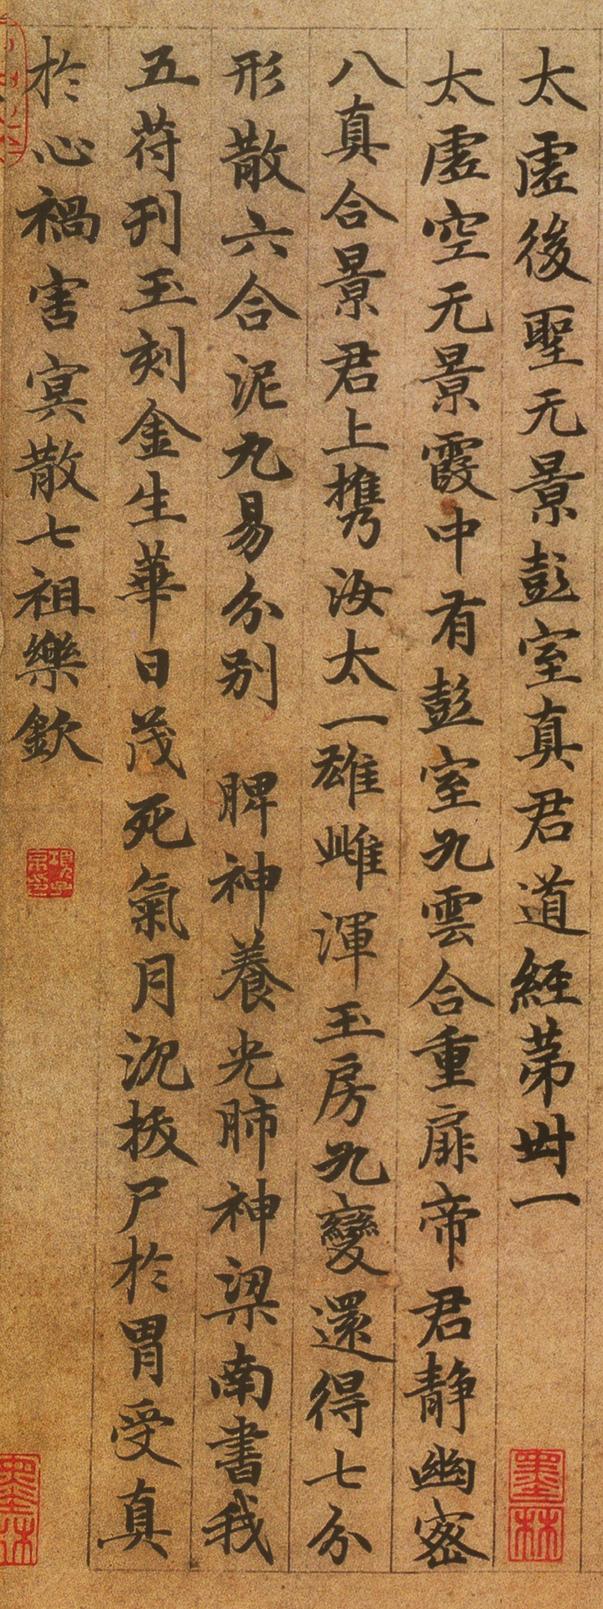 太虚後聖无景彭室真君道經苐卅一
太虚空无景霞中有彭室九雲合重扉帝君静幽密
八真合景君上携汝太一雄雌渾玉房九變還得七分
形散六合泥九易分别 脾神養光肺神梁南書我
五苻刊玉刻金生華日茂死氣月沉拔尸於胃受真
於心禍害冥散七祖樂欽
墨林